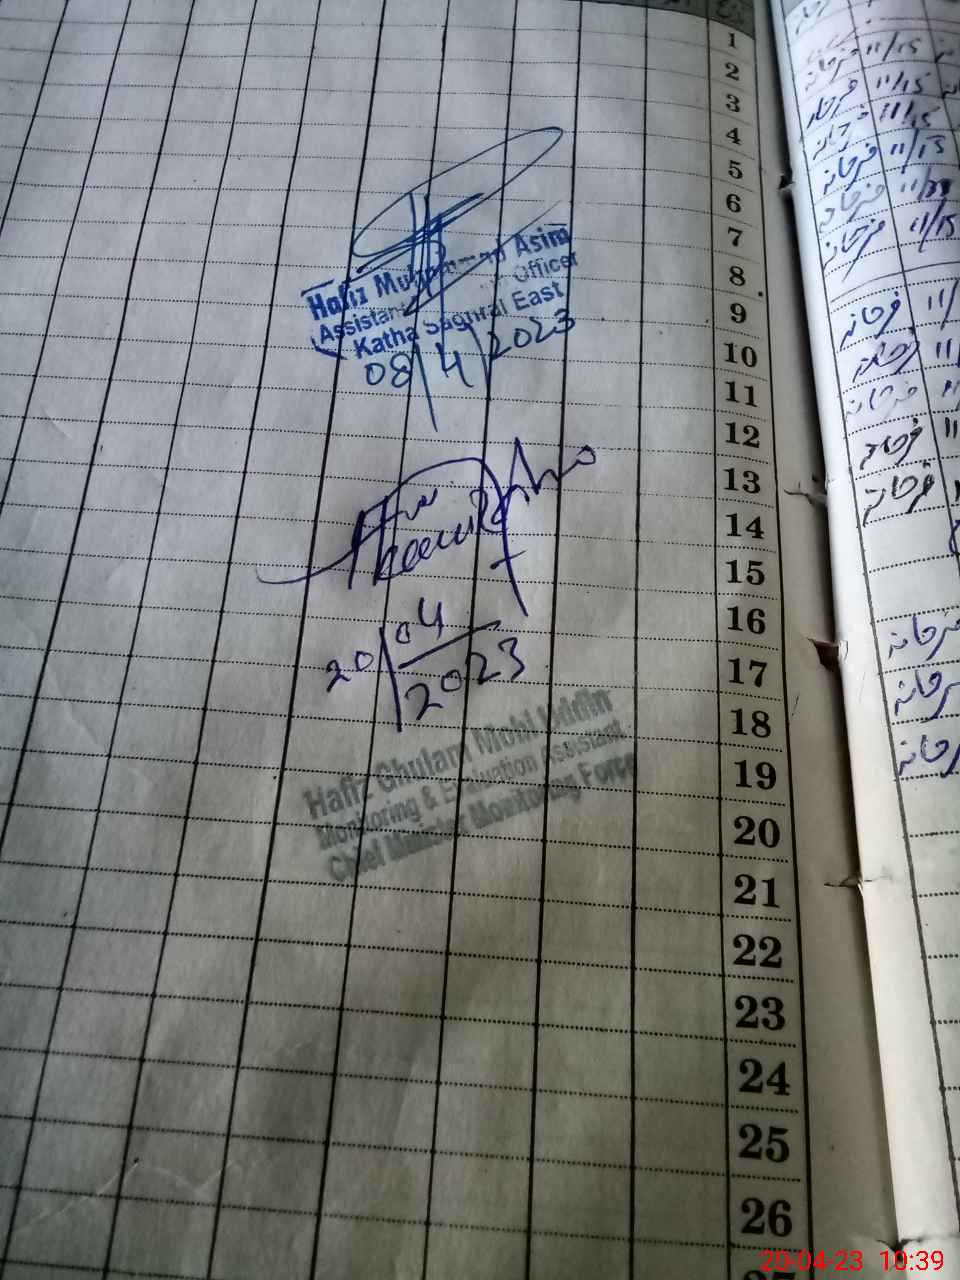 1
2
3
4
5
6
7
8
9
10
11
12
13
14
15
16
17
18
19
20
21
22
23
24
25
26
Hafiz Muhammad Asim
Assistant Officer
Katha Saghral East
08/4/2023
20/04/2023
Hafiz Ghulam Mohi Uddin
Monitoring & Evaluation Assistant
Chief Minister Monitoring Force
فرحانہ 11/15
فرحانہ 11/15
فرحانہ 11/15
فرحانہ 11/15
فرحانہ
فرحانہ 11/15
فرحانہ 11/
فرحانہ 11/
فرحانہ 11/
فرحانہ 11
فرحانہ
فرحانہ
فرحانہ
فرحانہ
20-04-23 10:39